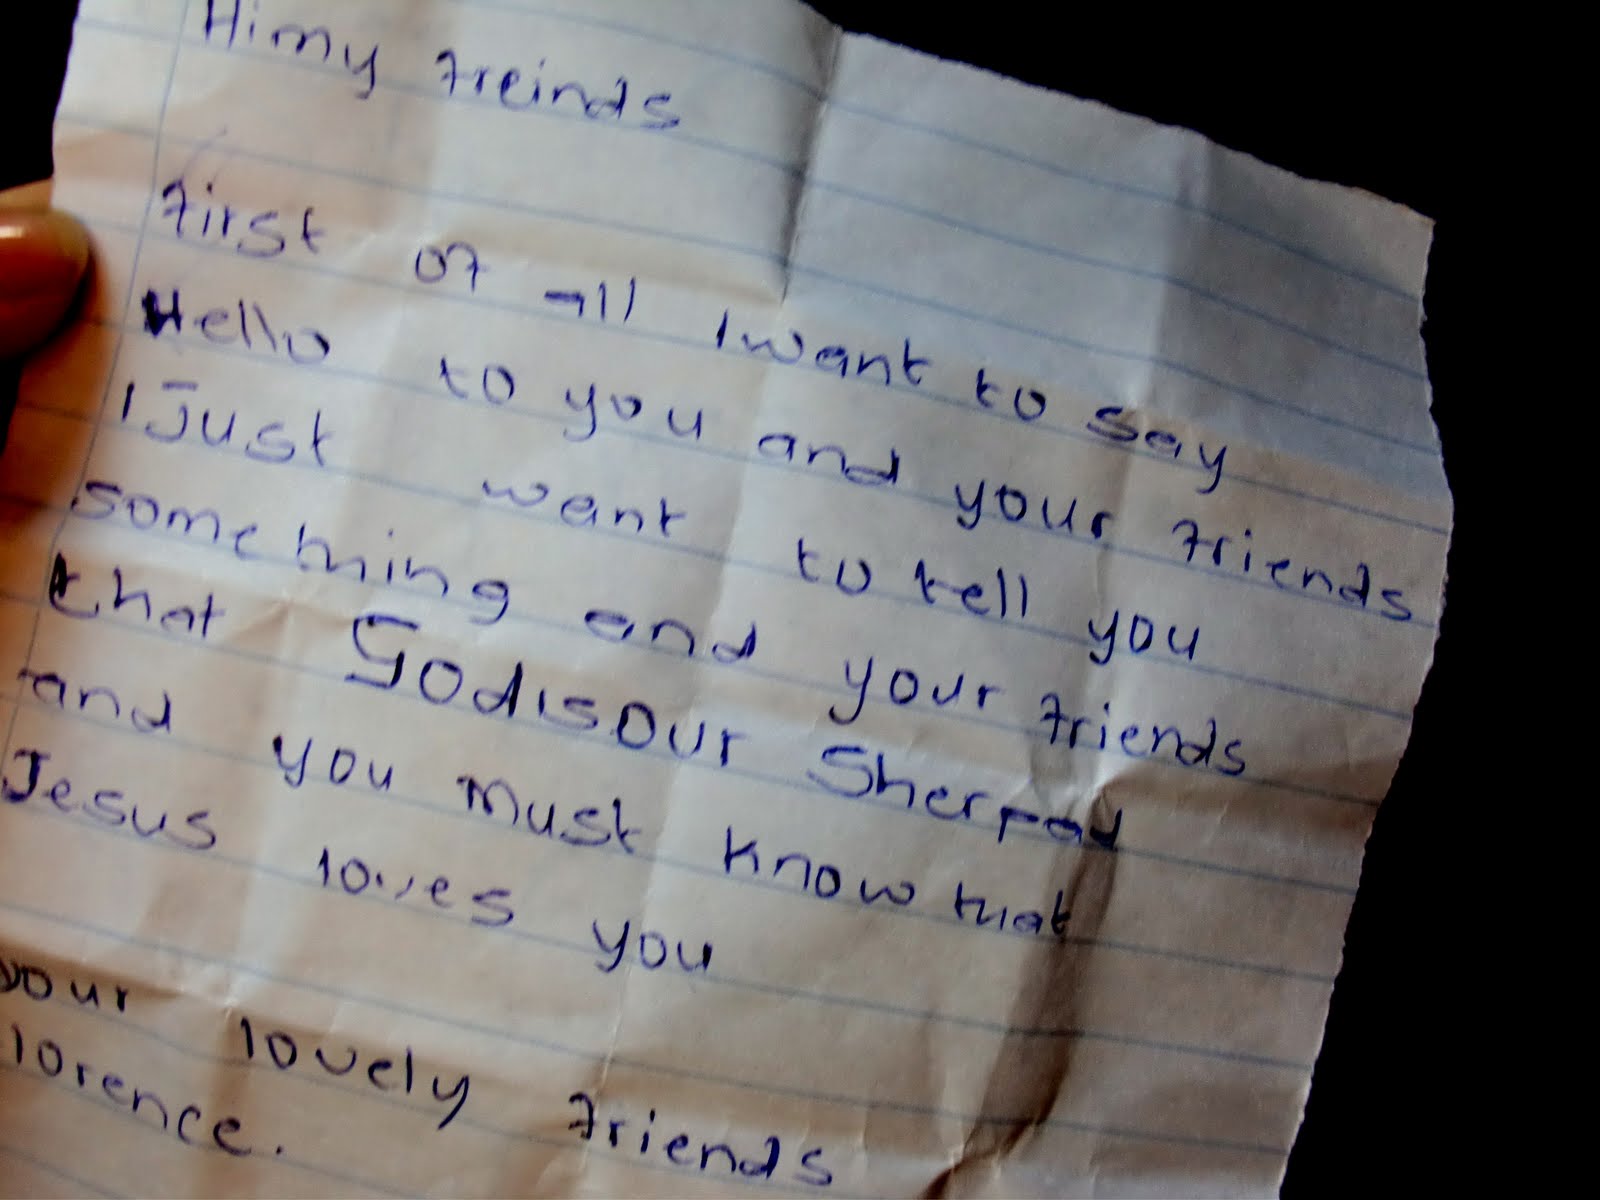 Hi my freinds
First of all I want to say
Hello to you and your friends
I Just want to tell you
something and your friends
that God is our Sherpad
and you must know that
Jesus loves you
your lovely friends
lorence.